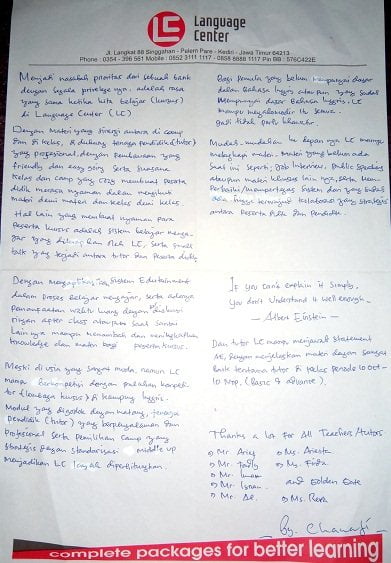 LC
Language
Center
Jl. Langkat 88 Singgahan - Palem Pare - Kediri - Jawa Timur 64213
Phone : 0354 - 396 561 Mobile : 0852 3111 1117 - 0858 8888 1117 Pin BB : 576C422E
Menjadi nasabah prioritas dari sebuah bank
dengan segala privelege nya. adalah rasa
yang sama ketika kita belajar (kursus)
di Language Center (LC)
Dengan Materi yang sinergi antara di camp
dan di kelas, di dukung tenaga pendidik (tutor)
yang profesional, dengan pembawaan yang
friendly dan easy going serta suasana
kelas dan camp yang cozy membuat peserta
didik merasa nyaman dalam mengikuti
materi demi materi dan kelas demi kelas
Hal lain yang membuat nyaman para
peserta kursus adalah sistem belajar menga-
jar yang oleh LC, serta small
talk yang terjadi antara tutor dan peserta didik
Dengan sistem Edutainment
dalam proses belajar mengajar, serta adanya
pemanfaatan waktu luang dengan diskusi
dengan after class ataupun saat santai
lainnya mampu menambah dan meningkatkan
knowledge dan materi bagi peserta kursus.
Meski di usia yang sangat muda, namun LC
mampu berkompetisi dengan puluhan kompeti-
tor (lembaga kursus) di kampung Inggris.
Modul yang digodok dengan matang, tenaga
pendidik (tutor) yang berpengalaman dan
profesional serta pemilihan camp yang
strategis dengan standarisasi middle up
menjadikan LC layak diperhitungkan.
Bagi pemula yang belum mempunyai dasar
dalam bahasa Inggris ataupun yang sudah
mempunyai dasar bahasa Inggris. LC
mampu mengakomodir itu semua.
Jadi tidak perlu khawatir.
Mudah-mudahan ke depan nya LC mampu
melengkapi materi-materi yang belum ada
saat ini seperti; Job Interview, Public Speaking
ataupun materi khusus lain nya, serta
Perbaiki/mempertegas sistem dan yang sudah
ada hingga terwujud kolaborasi yang strategis
antara peserta didik dan pendidik.
If you can't explain it simply,
you don't understand it well enough
— Albert Einstein —
Dan tutor LC mampu menjawab statement
AE, dengan menjelaskan materi dengan sangat
baik terutama tutor di kelas periode 10 Oct-
10 Nop. (Basic & advance).
Thanks a lot For All Teachers/Tutors
Mr. Aries
Mr. Fadly
Mr. Imam
Mr.
Mr. Ae.
Ms. Ariesta
Ms. Firda
and Golden Gate
Ms. Reva
By.
complete packages for better learning